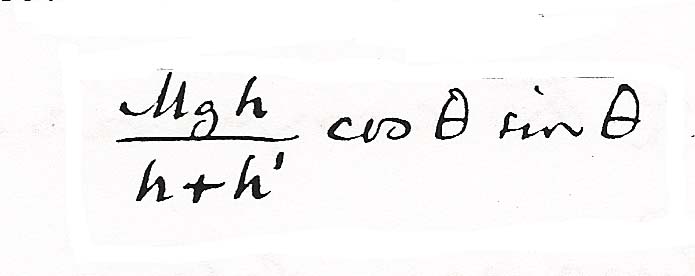 Mgh
h+h' cos θ sin θ